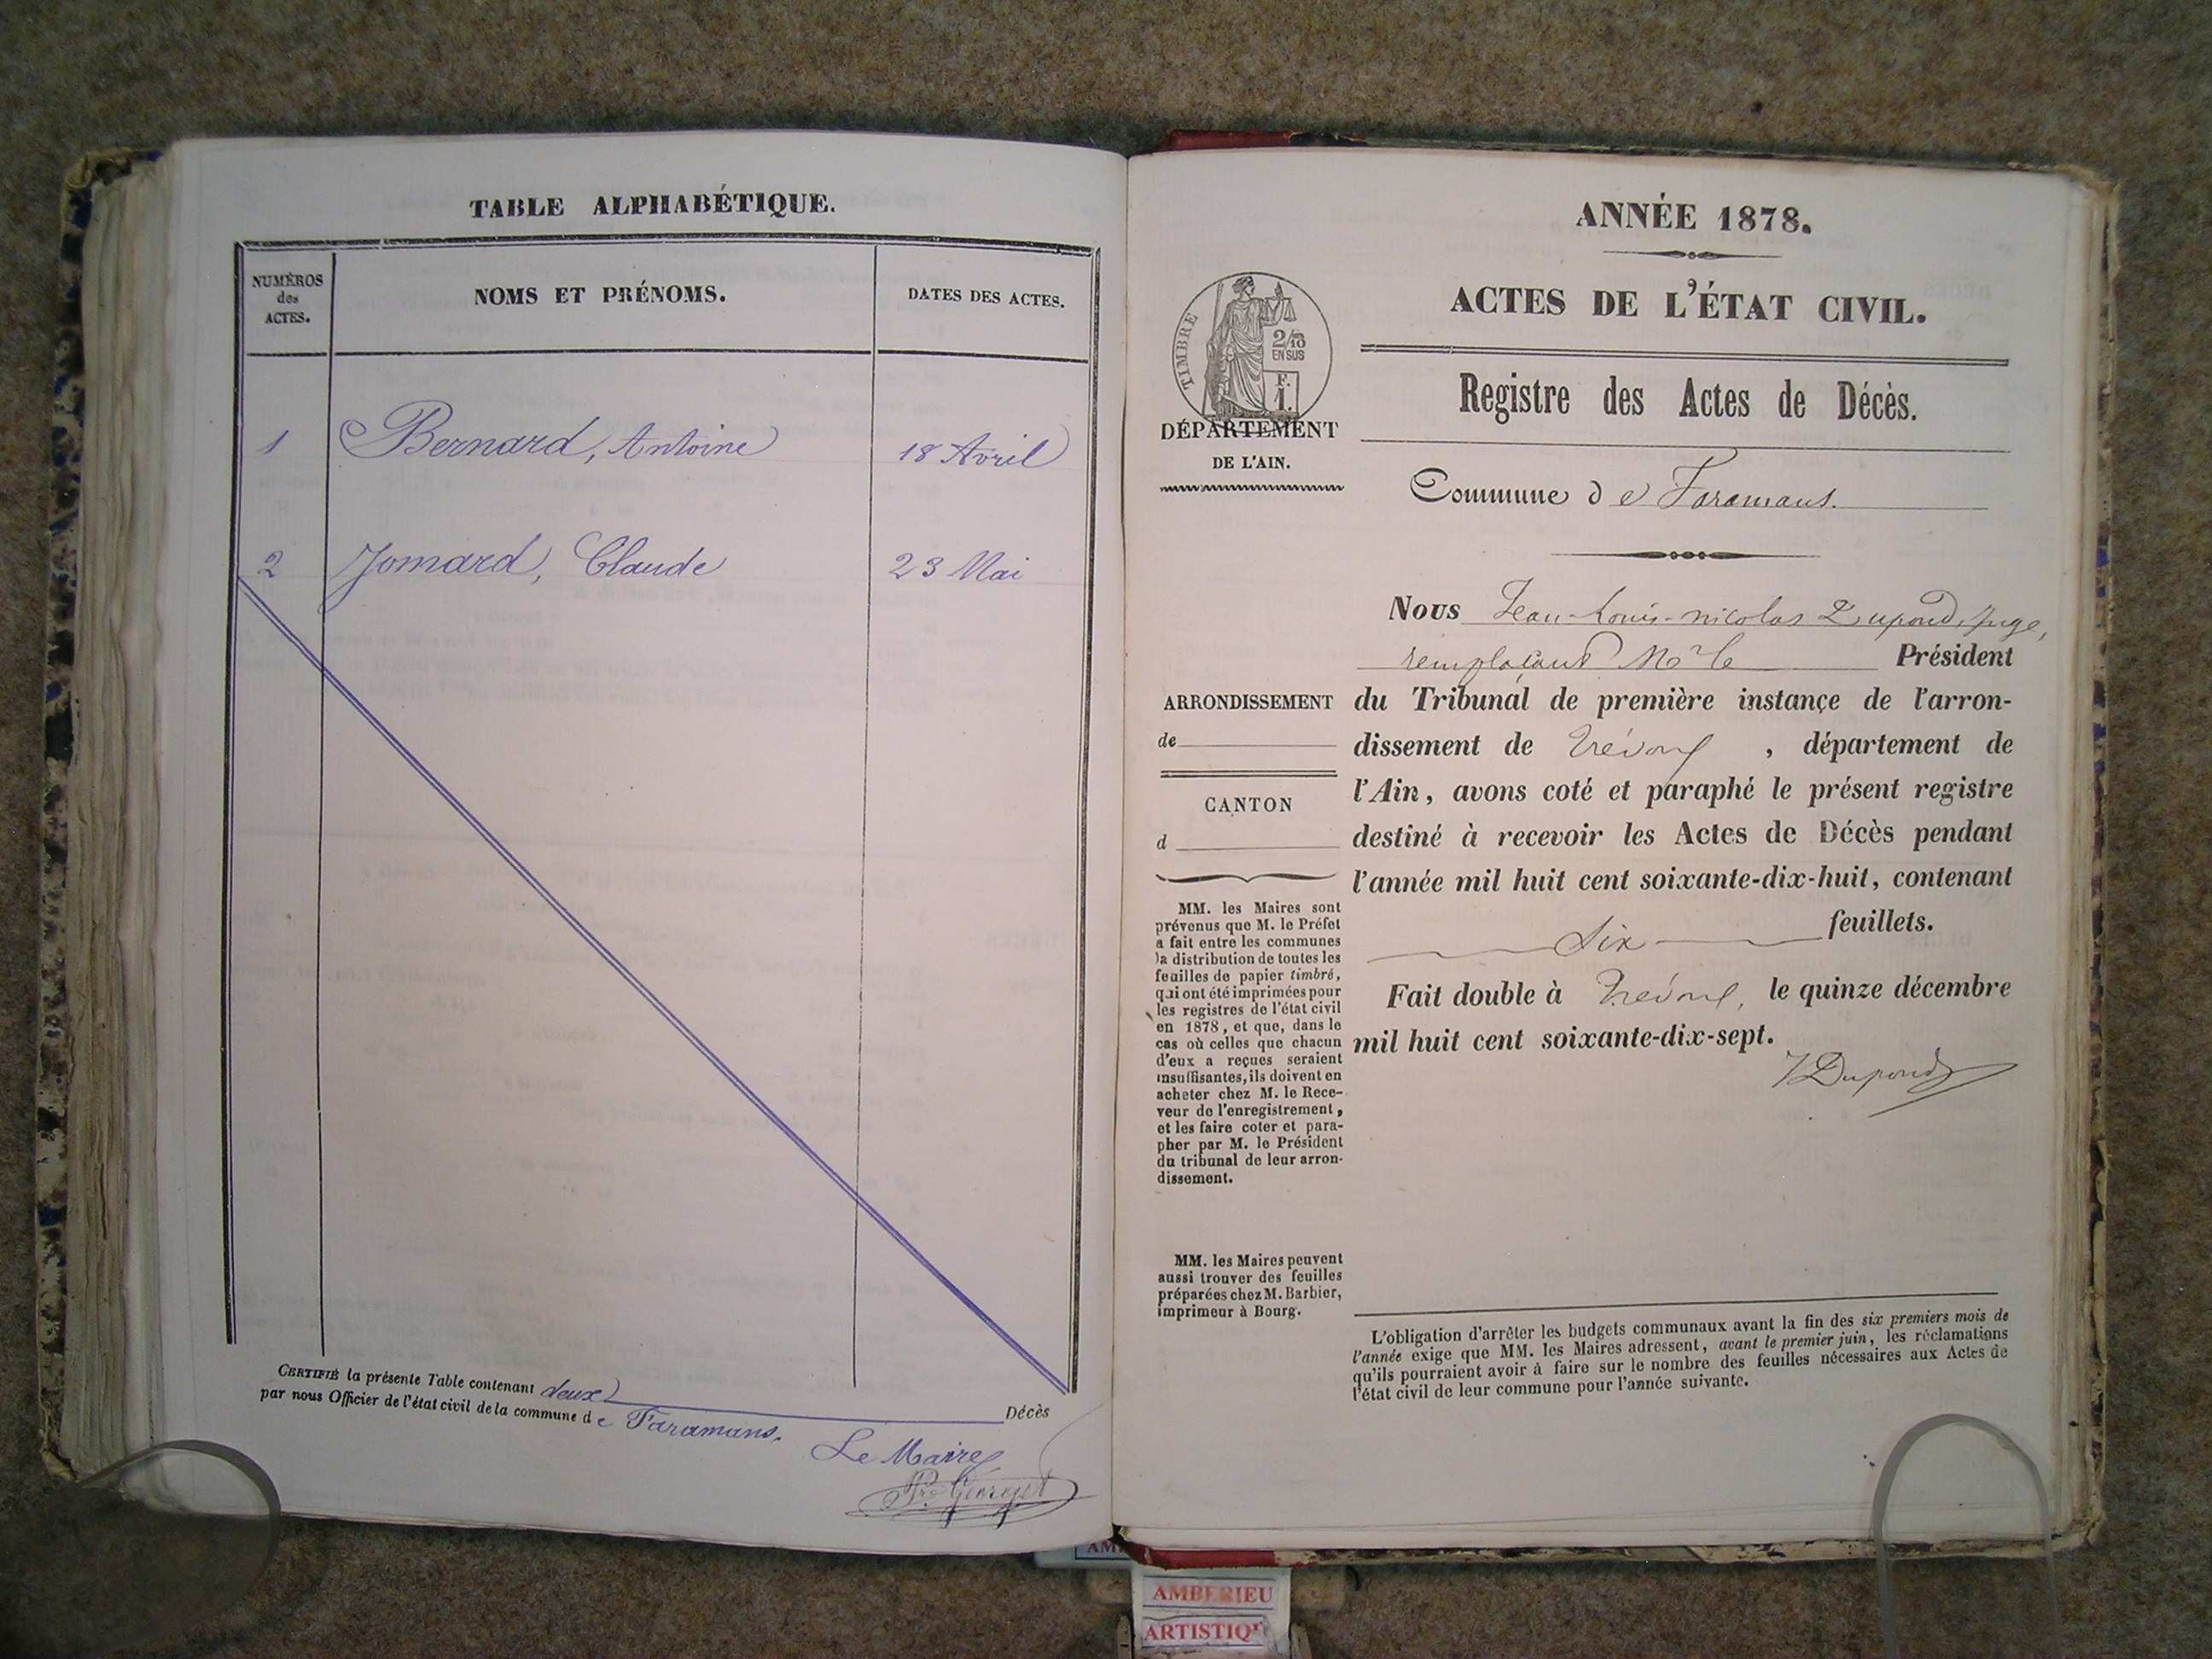 TABLE ALPHABÉTIQUE.
NUMÉROS
des
ACTES.
NOMS ET PRÉNOMS.
DATES DES ACTES.
1 Bernard, Antoine 18 Avril
2 Jomard, Claude 23 Mai
CERTIFIÉ la présente Table contenant deux Décès
par nous Officier de l'état civil de la commune de Faramans.
Le Maire
ANNÉE 1878.
ACTES DE L'ÉTAT CIVIL.
TIMBRE
2/10
EN SUS
F.
1.
DÉPARTEMENT
DE L'AIN.
Registre des Actes de Décès.
Commune de Faramans.
Nous Jean-Louis-Nicolas Dupond, Juge,
remplaçant Mr le Président
du Tribunal de première instance de l'arron-
dissement de Trévoux, département de
l'Ain, avons coté et paraphé le présent registre
destiné à recevoir les Actes de Décès pendant
l'année mil huit cent soixante-dix-huit, contenant
six feuillets.
Fait double à Trévoux, le quinze décembre
mil huit cent soixante-dix-sept.
Dupond
ARRONDISSEMENT
de
CANTON
d
MM. les Maires sont
prévenus que M. le Préfet
a fait entre les communes
la distribution de toutes les
feuilles de papier timbré,
qui ont été imprimées pour
les registres de l'état civil
en 1878, et que, dans le
cas où celles que chacun
d'eux a reçues seraient
insuffisantes, ils doivent en
acheter chez M. le Rece-
veur de l'enregistrement,
et les faire coter et para-
pher par M. le Président
du tribunal de leur arron-
dissement.
MM. les Maires peuvent
aussi trouver des feuilles
préparées chez M. Barbier,
imprimeur à Bourg.
L'obligation d'arrêter les budgets communaux avant la fin des six premiers mois de
l'année exige que MM. les Maires adressent, avant le premier juin, les réclamations
qu'ils pourraient avoir à faire sur le nombre des feuilles nécessaires aux Actes de
l'état civil de leur commune pour l'année suivante.
AMBERIEU
ARTISTIQ